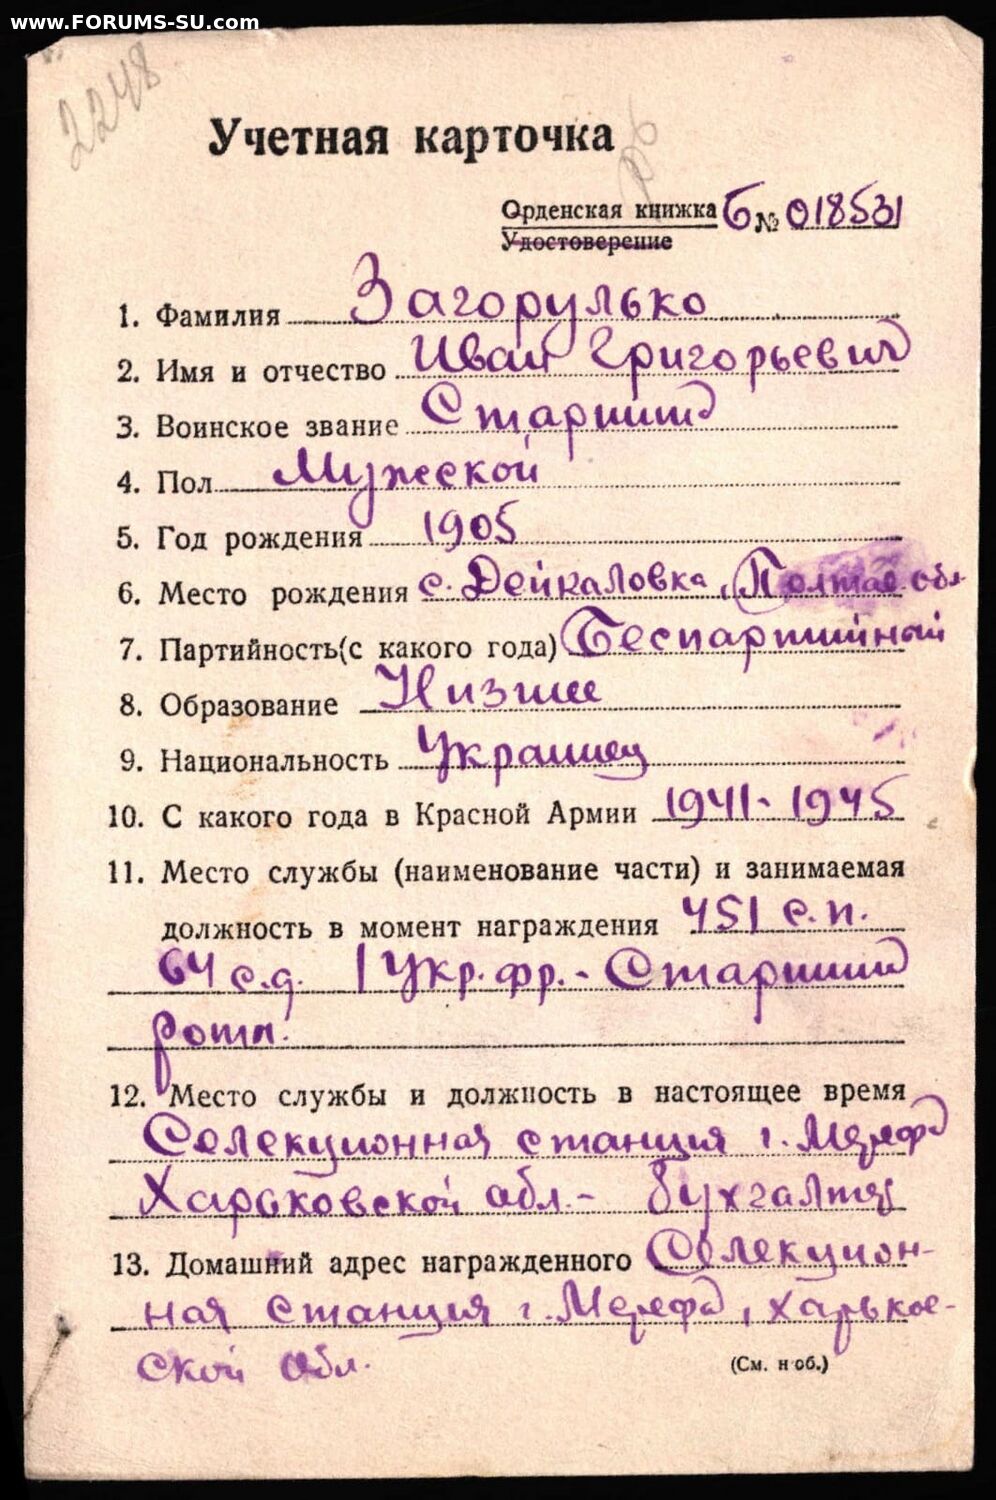 www.FORUMS-SU.com
2248
Учетная карточка
Орденская книжка Б № 018531
Удостоверение
1. Фамилия Загорулько
2. Имя и отчество Иван Григорьевич
3. Воинское звание Старшина
4. Пол Мужской
5. Год рождения 1905
6. Место рождения с. Дейкаловка, Полтав обл
7. Партийность(с какого года) Беспартийный
8. Образование Низшее
9. Национальность Украинец
10. С какого года в Красной Армии 1941-1945
11. Место службы (наименование части) и занимаемая
должность в момент награждения 451 с.п.
64 с.д. 1 Укр. фр. - Старшина
роты.
12. Место службы и должность в настоящее время
Селекционная станция г. Мерефа
Харьковской обл. - бухгалтер
13. Домашний адрес награжденного Селекцион-
ная станция г. Мерефа, Харьков-
ской обл.
(См. н об.)